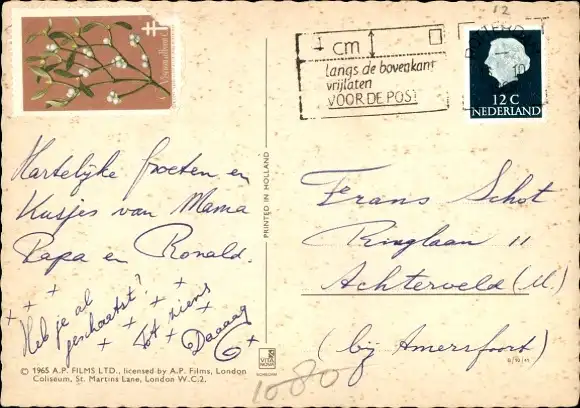 Viscum album L.
cm
langs de bovenkant
vrijlaten
VOOR DE POST
12
10
12 C
NEDERLAND
Hartelijke groeten en
Kusjes van Mama
Papa en Ronald.
Heb je al
geschaatst?
Tot ziens
Daaaag
PRINTED IN HOLLAND
Frans Schot
Ringlaan 11
Achterveld (U.)
(bij Amersfoort)
© 1965 A.P. FILMS LTD., licensed by A.P. Films, London
Coliseum, St. Martins Lane, London W.C.2.
VITA
NOVA
SCHIEDAM
1080